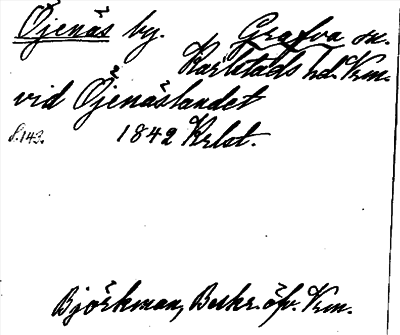 Öjenäs by. Grafva sn.
Karlstads hd. Vrm.
vid Öjenäslandet
s. 143. 1842 Krlst.
Björkman, Beskr. öfv. Vrm.